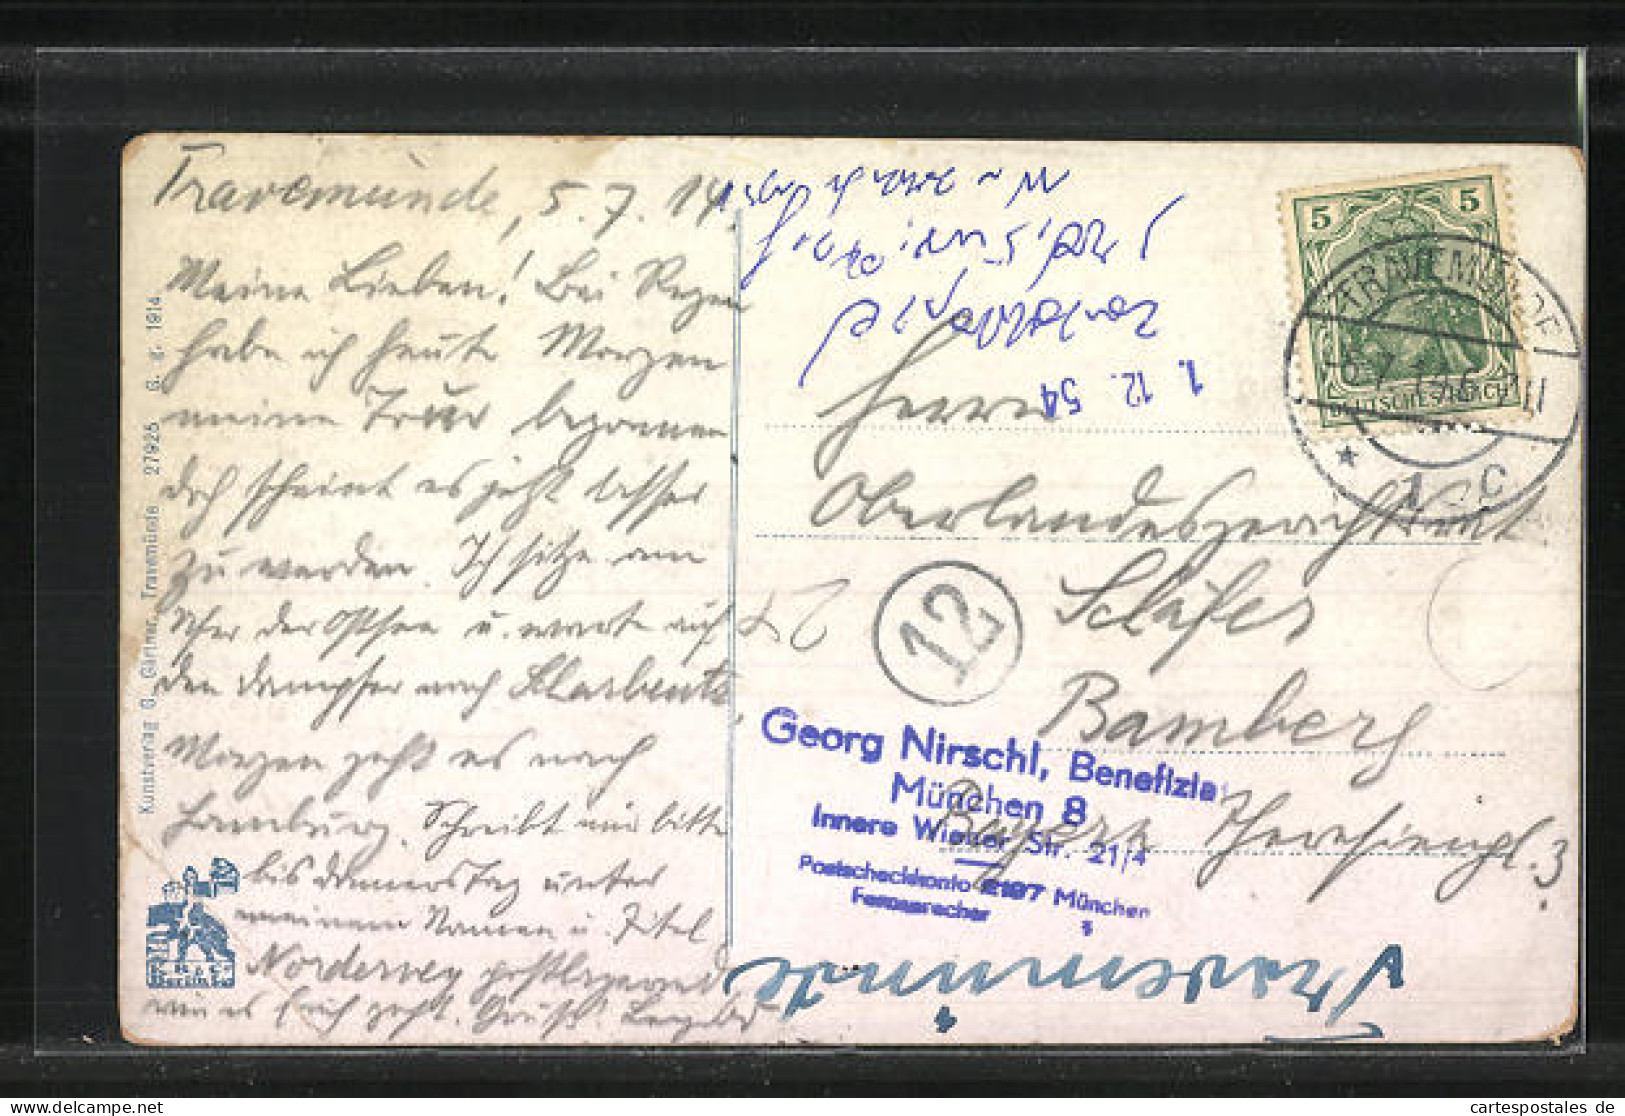 Travemünde, 5.7.14.
Meine Lieben! Bei Regen
habe ich heute Morgen
meine Tour begonnen
doch scheint es jetzt besser
zu werden. Ich sitze am
Ufer der Ostsee u. warte auf
den Dampfer nach
Morgen geht es nach
Hamburg. Schreibt mir bitte
bis Donnerstag unter
meinem Namen u. Titel
Norderney postlagernd
wie es Euch geht. Gruß!
Kunstverlag G. Gärtner, Travemünde 27925 G. g. 1914
1. 12. 54
5 5
DEUTSCHES REICH
TRAVEMÜNDE
* 1 c
Herrn
Oberlandesgerichtsrat
Schäfer
Bamberg
Bayern
12
Georg Nirschl, Benefizia
München 8
Innere Wiener Str. 21/4
Postscheckkonto München
Fernsprecher
Travemünde
cartespostales de